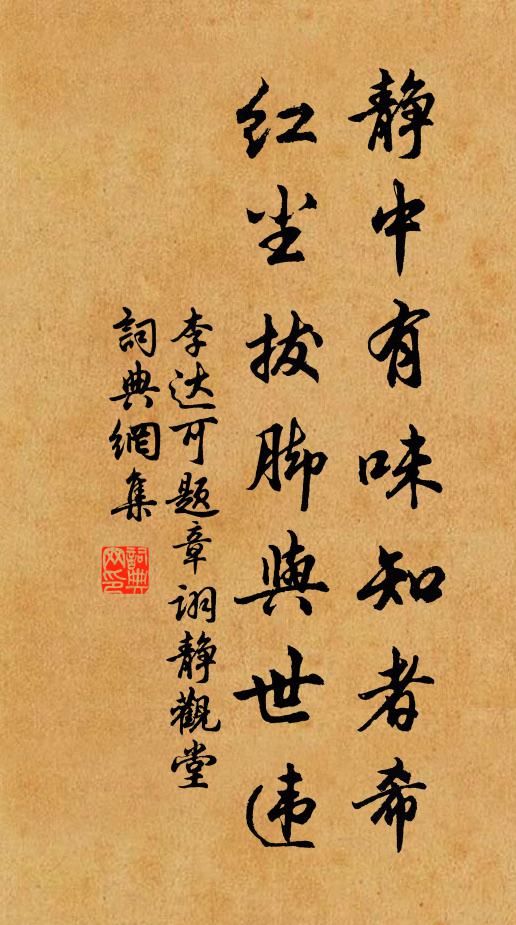 静中有味知者希
红尘拔脚與世违
李达可题章诩静觀堂
詞典網集
詞典网印